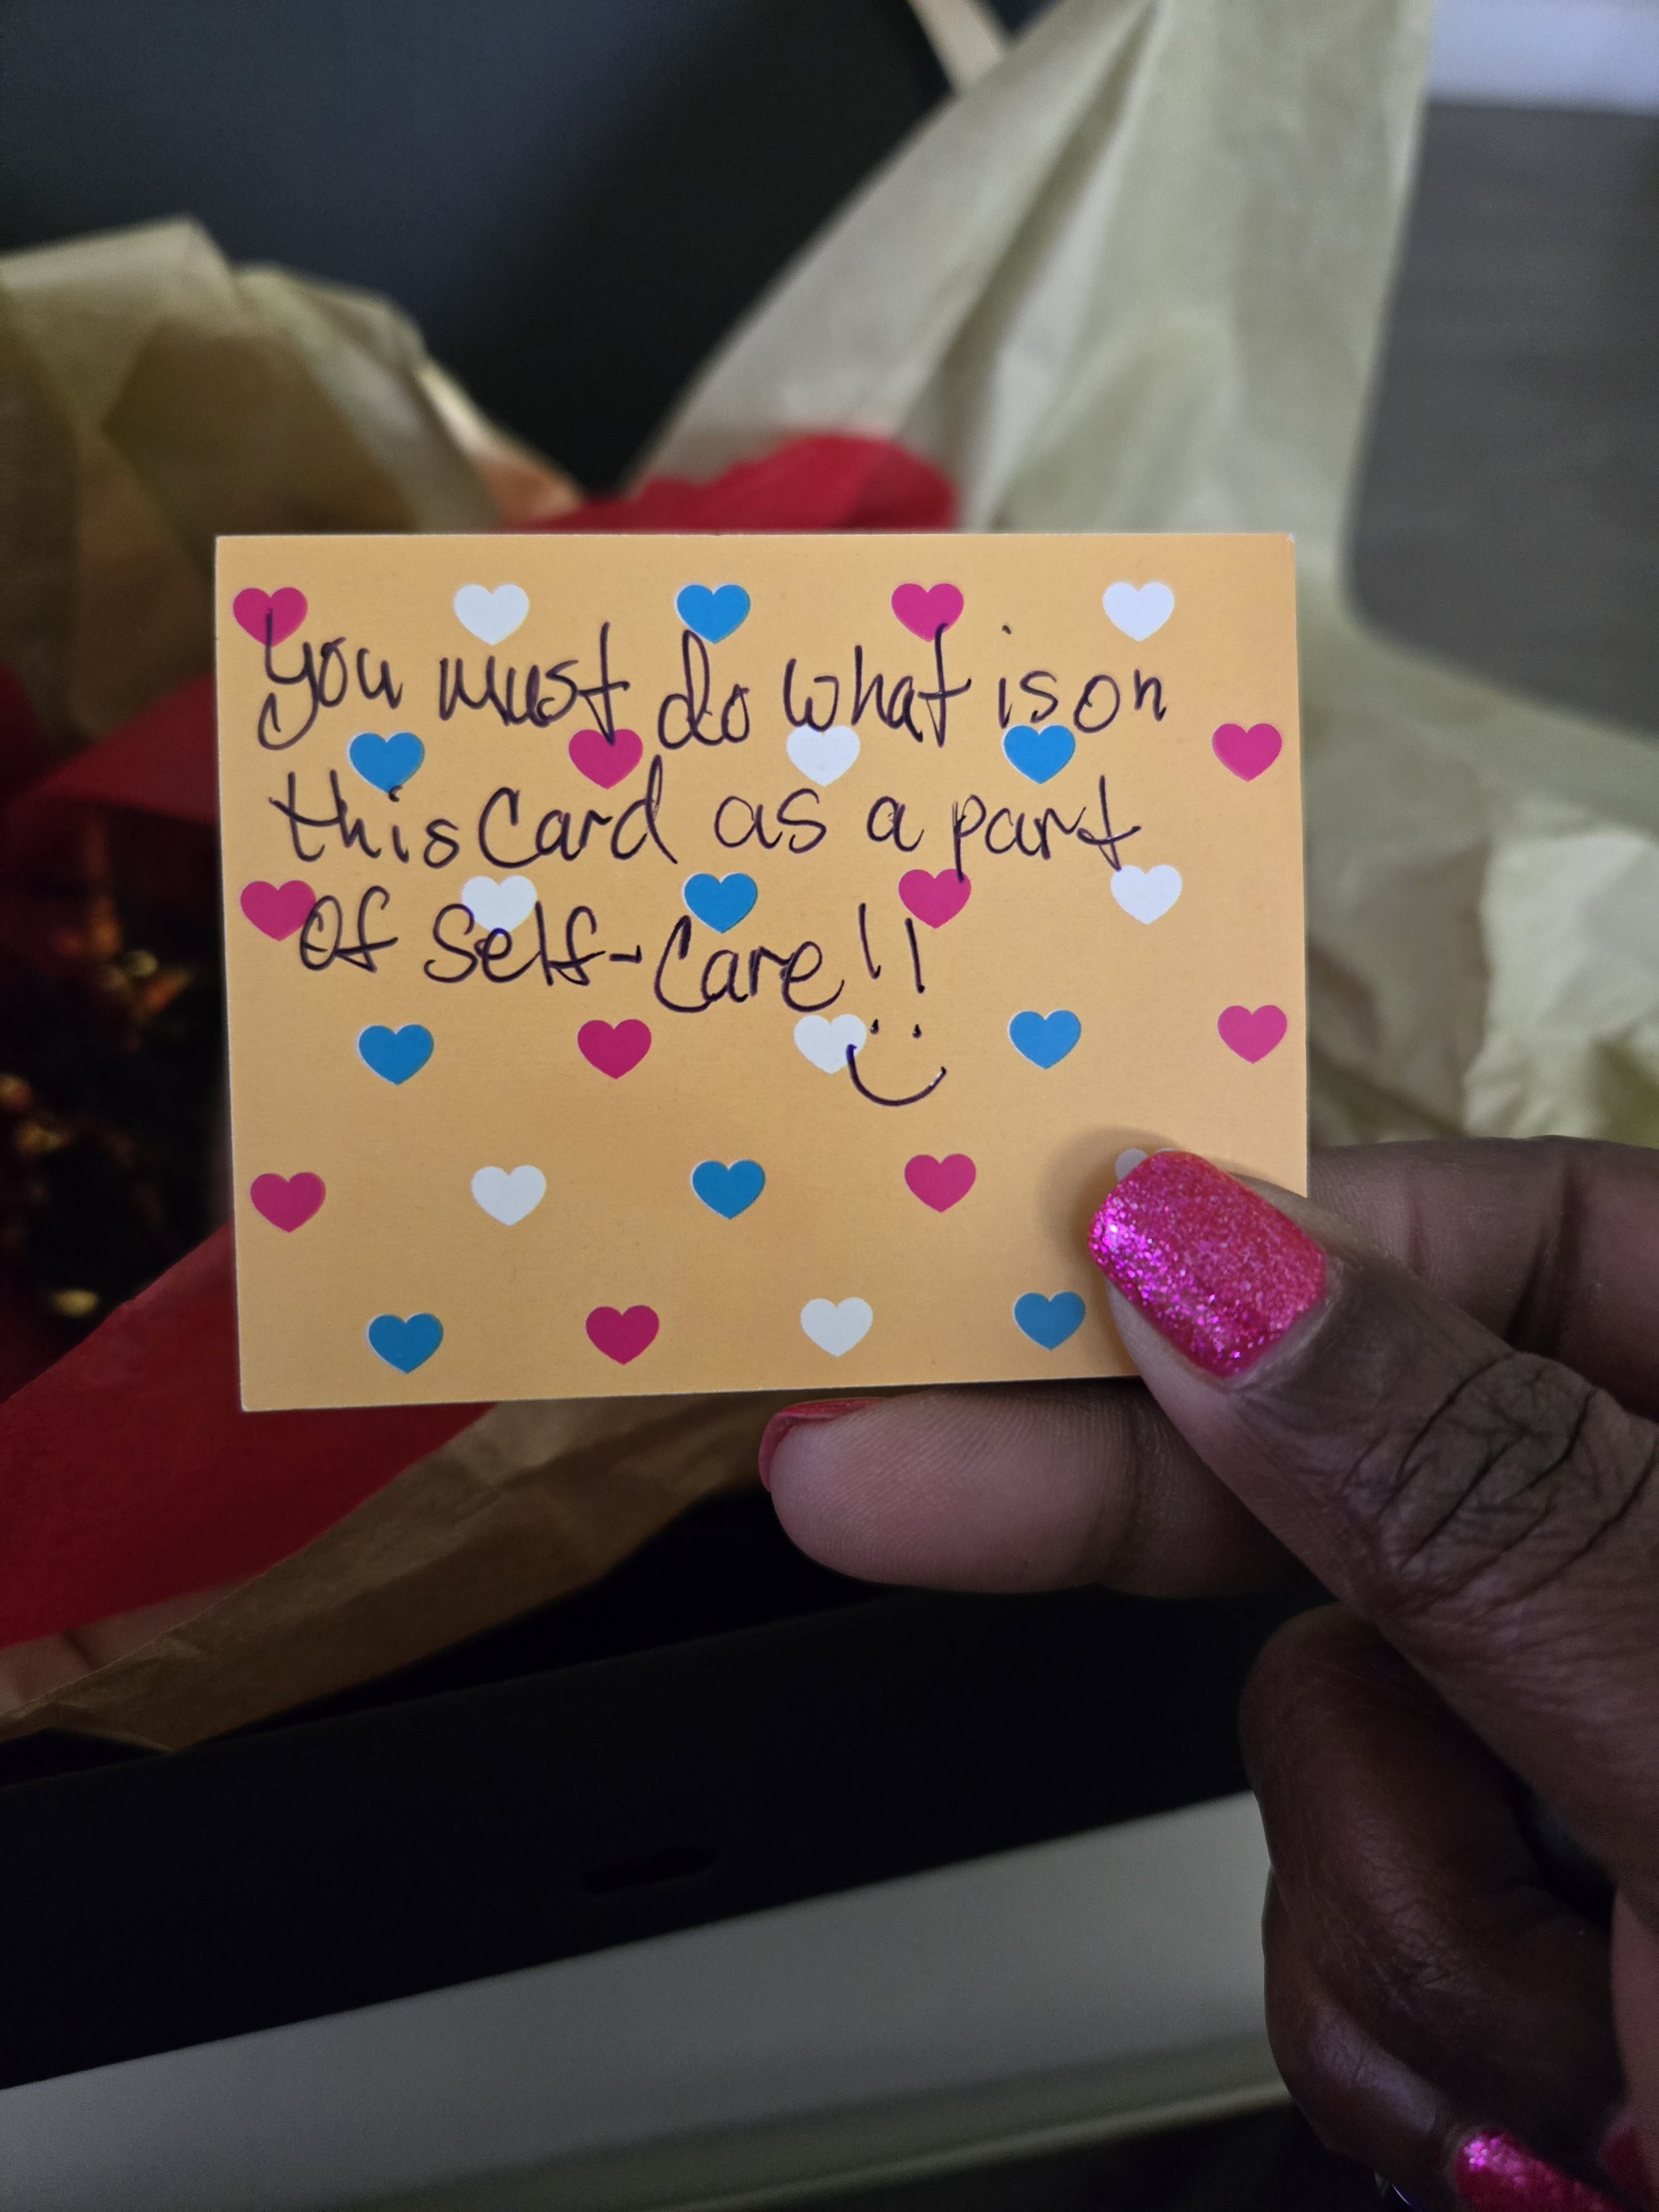 you must do what is on
this Card as a part
of Self-Care!!